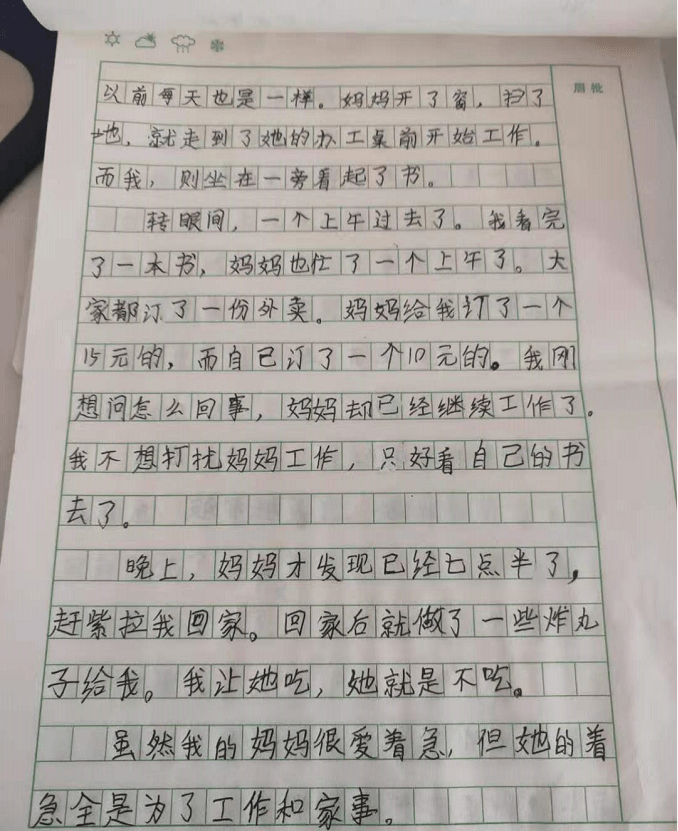 眉批
以前每天也是一样。妈妈开了窗，扫了
地，就走到了她的办工桌前开始工作。
而我，则坐在一旁看起了书。
转眼间，一个上午过去了。我看完
了一本书，妈妈也忙了一个上午了。大
家都订了一份外卖。妈妈给我订了一个
15元的，而自己订了一个10元的。我刚
想问怎么回事，妈妈却已经继续工作了。
我不想打扰妈妈工作，只好看自己的书
去了。
晚上，妈妈才发现已经七点半了，
赶紧拉我回家。回家后就做了一些炸丸
子给我。我让她吃，她就是不吃。
虽然我的妈妈很爱着急，但她的着
急全是为了工作和家事。